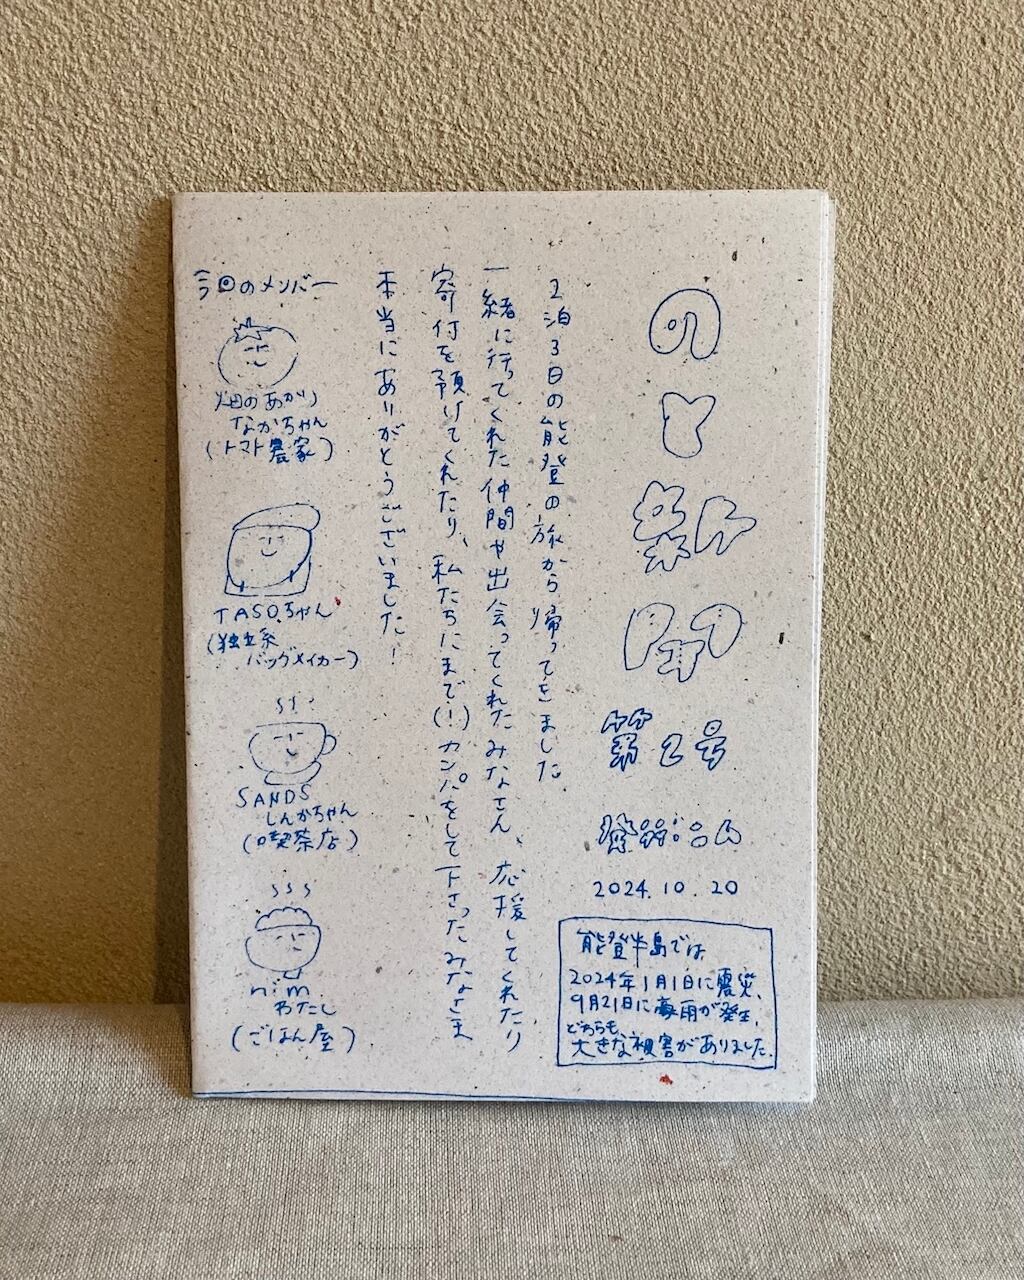 のと
第2号
2024.10.20
能登半島では
2024年1月1日に震災、
9月21日に豪雨が発生、
どちらも
大きな被害がありました。
2泊3日の能登の旅から帰ってきました
一緒に行ってくれた仲間や出会ってくれたみなさん、応援してくれたり
寄付を預けてくれたり、私たちにまで(!)カンパをして下さったみなさま
本当にありがとうございました!
今回のメンバー
畑のあかり
なかちゃん
(トマト農家)
TASO.ちゃん
(独立系
バッグメイカー)
SANDS
しんかちゃん
(喫茶店)
nim
わたし
(ごはん屋)